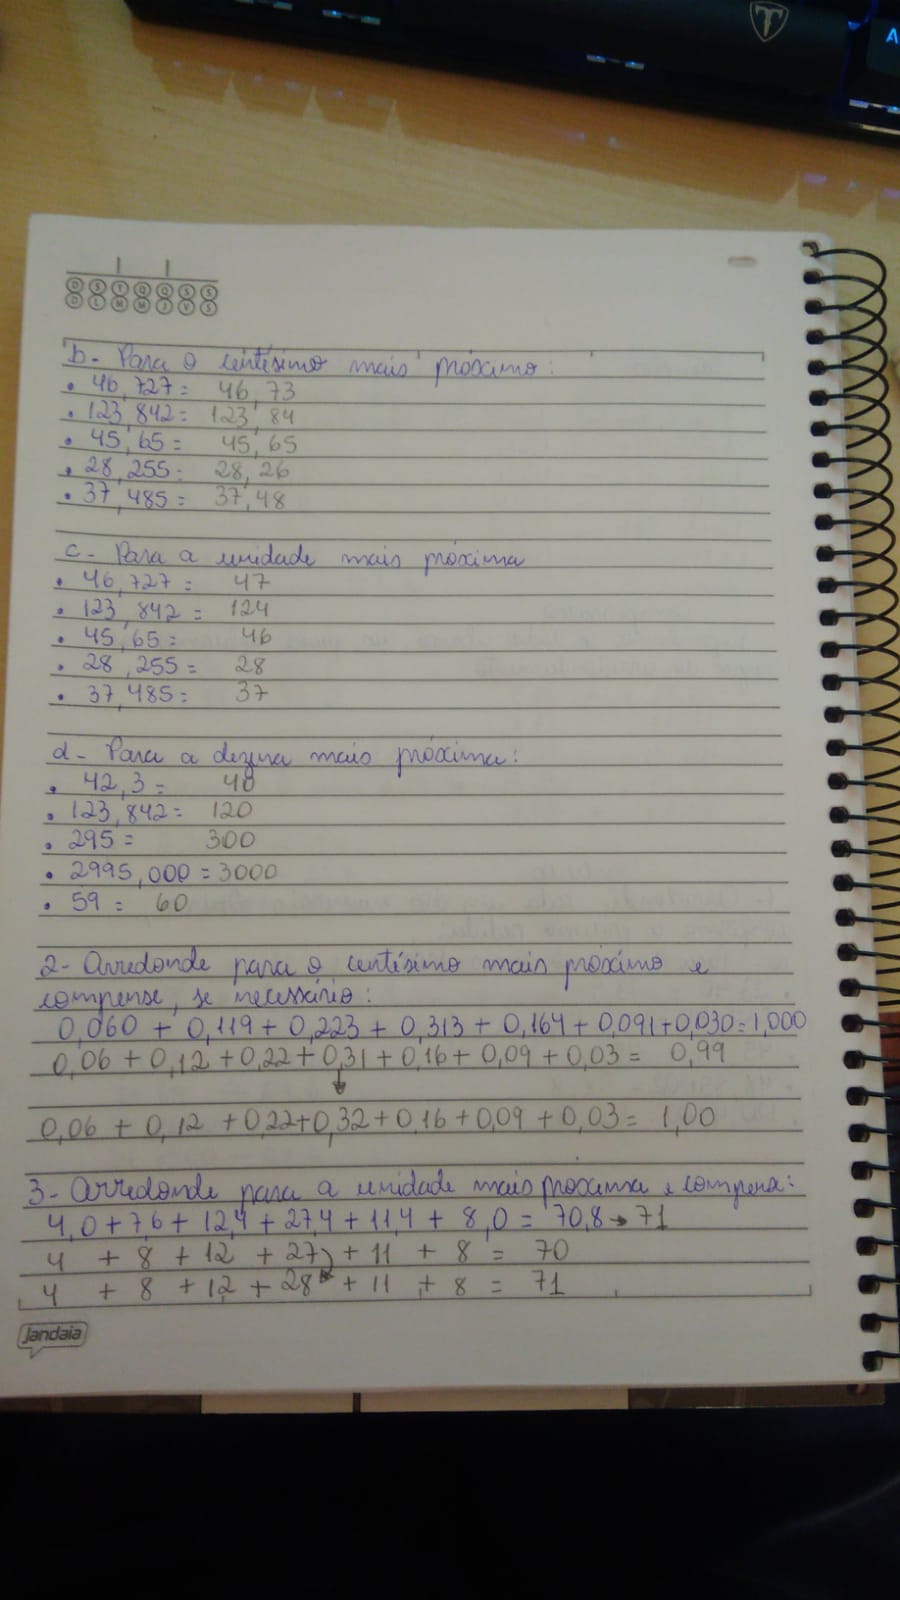 D S T Q Q S S
D L M M J V S
b- Para o centésimo mais próximo:
• 46,727 = 46,73
• 123,842 = 123,84
• 45,65 = 45,65
• 28,255 = 28,26
• 37,485 = 37,48
c- Para a unidade mais próxima
• 46,727 = 47
• 123,842 = 124
• 45,65 = 46
• 28,255 = 28
• 37,485 = 37
d- Para a dezena mais próxima:
• 42,3 = 40
• 123,842 = 120
• 295 = 300
• 2995,000 = 3000
• 59 = 60
2- Arredonde para o centésimo mais próximo e
compense, se necessário:
0,060 + 0,119 + 0,223 + 0,313 + 0,164 + 0,091 + 0,030 = 1,000
0,06 + 0,12 + 0,22 + 0,31 + 0,16 + 0,09 + 0,03 = 0,99
0,06 + 0,12 + 0,22 + 0,32 + 0,16 + 0,09 + 0,03 = 1,00
3- Arredonde para a unidade mais próxima e compense:
4,0 + 7,6 + 12,4 + 27,4 + 11,4 + 8,0 = 70,8 → 71
4 + 8 + 12 + 27 + 11 + 8 = 70
4 + 8 + 12 + 28 + 11 + 8 = 71
Jandaia